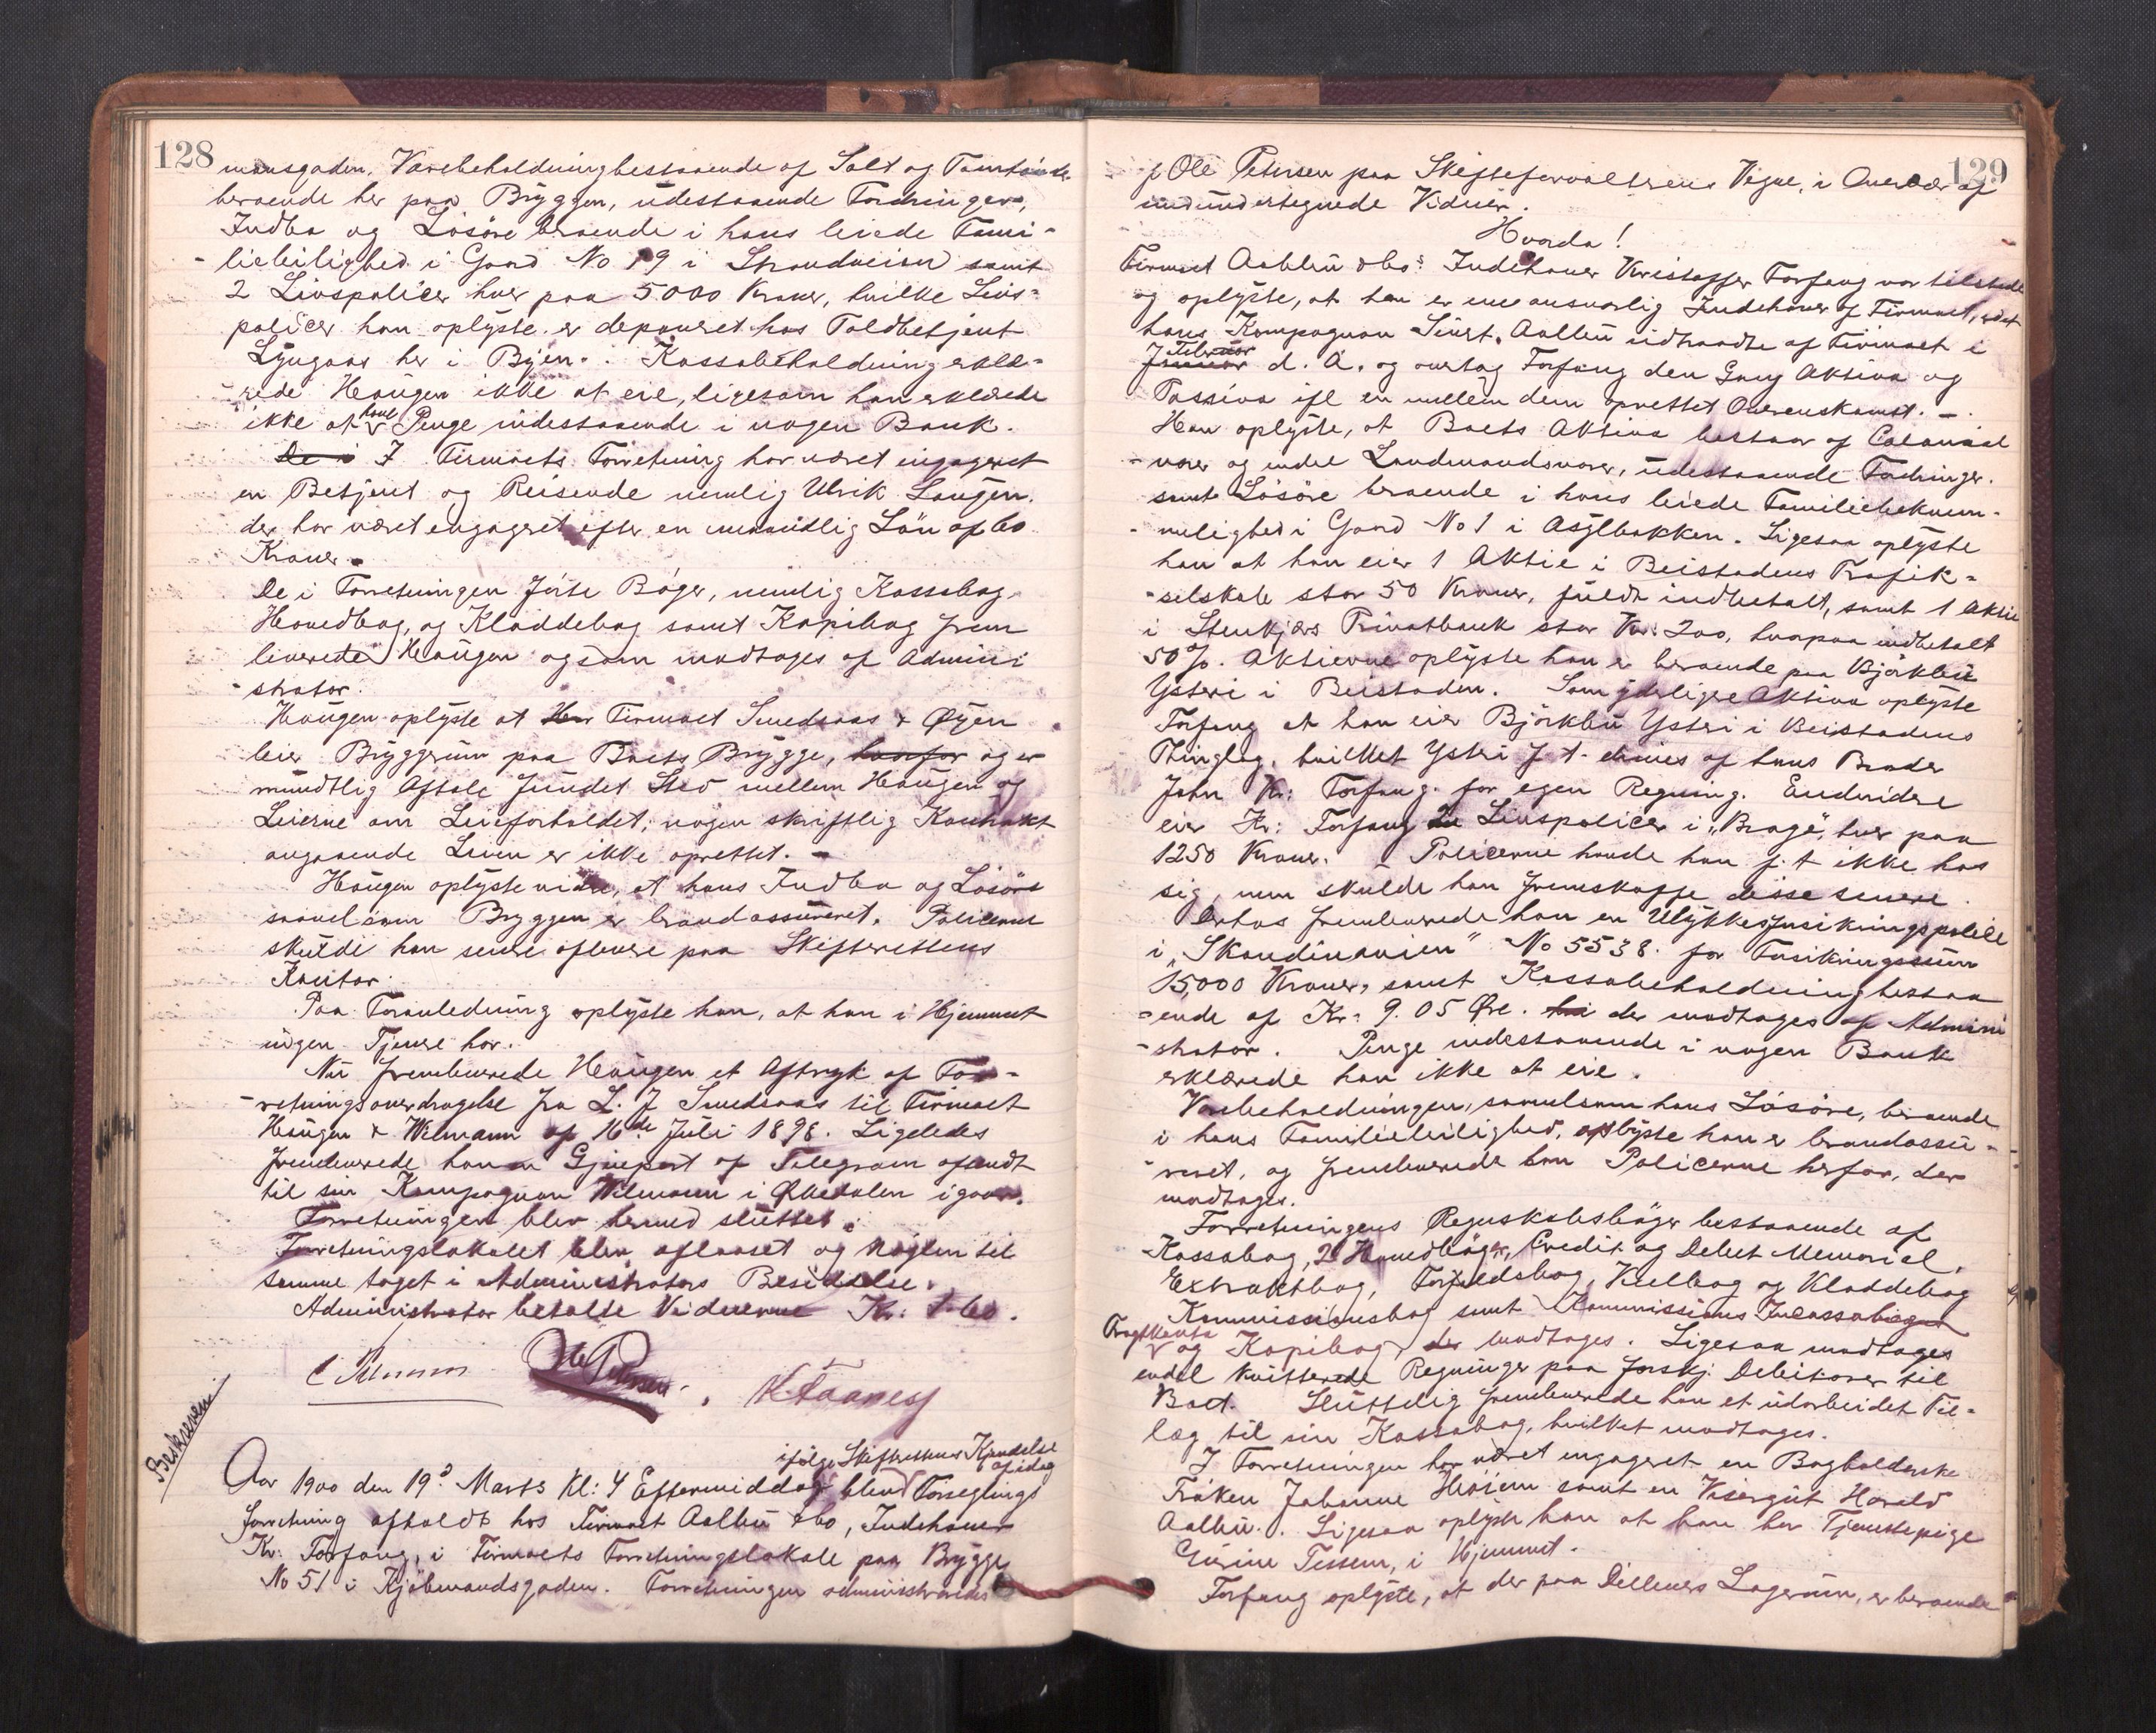 128
mansgaden. Varebeholdning bestaaende af Salt og Tomtönder
beroende her paa Bryggen, udestaaende Fordringer,
Indbo og Lösöre beroende i hans leiede Fami-
lieleilighed i Gaard No 19 i Strandveien samt
2 Livspolicer hver paa 5000 Kroner, hvilke Livs-
policer han oplyste er deponeret hos Toldbetjent
Lyngaas her i Byen. Kassabeholdning erklæ-
rede Haugen ikke at eie, ligesom han erklærede
ikke at have Penge indestaaende i nogen Bank.
De i I Firmaets Forretning har været engageret
en Betjent og Reisende nemlig Ulrik Laugen.
der har været engageret efter en maanedlig Lön af 60
Kroner.
De i Forretningen förte Böger, nemlig Kassabog
Hovedbog, og Kladdebog samt Kopibog frem
leverede Haugen og som modtages af Admini
strator.
Haugen oplyste at Her Firmaet Smedsaas & Øyen
leier Bryggerum paa Boets Brygge, hvorfor og er
mundtlig Aftale fundet Sted mellem Haugen og
Leierne om Leieforholdet; nogen skriftlig Kontrakt
angaaende Leien er ikke oprettet. -
Haugen oplyste videre, at hans Indbo og Lösöre
saavelsom Bryggen er brandassureret. Policerne
skulde han senere aflevere paa Skifterettens
Kontor.
Paa Foranledning oplyste han, at han i Hjemmet
ingen Tjener har.
Nu fremleverede Haugen et Aftryk af For-
retningsoverdragelse fra L. J Smedsaas til Firmaet
Haugen & Wilmann af 16de Juli 1898. Ligeledes
fremleverede han en Gjenpart af Telegram afsendt
til sin Kompagnon Wilmann i Ørkedalen igaar.
Forretningen blev hermed sluttet.
Forretningslokalet blev aflaaset og Nöglen til
samme taget i Administrators Besiddelse.
Administrator betalte Vidnerne Kr: 1-60.
Ole Petersen
K. Faanes
Beskreven:
ifölge Skifterettens Kjendelse
af idag
Aar 1900 den 19de Marts Kl: 4 Eftermiddag blev Forseglings
forretning afholdt hos Firmaet Aalbu & Co, Indehaver
Kr: Forfang, i Firmaets Forretningslokale paa Brygge
No 51 i Kjöbmandsgaden. Forretningen administreredes
129
af Ole Petersen paa Skifteforvalterens Vegne, i Overvær af
undertegnede Vidner.
Hvorda!
Firmaet Aalbu & Co's Indehaver Kristoffer Forfang var tilstede
og oplyste, at han er eneansvarlig Indehaver af Firmaet, idet
hans Kompagnon Sivert. Aalbu udtraadte af Firmaet i
Februar
Januar d. A. og overtog Forfang den Gang Aktiva og
Passiva ifl en mellem dem oprettet Overenskomst. -
Han oplyste, at Boets Aktiva bestaar af Colonial
varer og endel Landmandsvarer, udestaaende Fordringer.
samt Lösöre beroende i hans leiede Familiebekvem-
melighed i Gaard No 1 i Asylbakken. Ligesaa oplyste
han at han eier 1 Aktie i Beistadens Trafik-
selskab stor 50 Kroner, fuldt indbetalt, samt 1 Aktie
i Stenkjærs Privatbank stor Kr: 200, hvorpaa indbetalt
50 %. Aktierne oplyste han er beroende paa Björkbu
Ysteri i Beistaden. Som yderligere Aktiva oplyste
Forfang at han eier Björkbu Ysteri i Beistadens
Thinglag, hvilket Ysteri f. t. drives af hans Broder
John Kr: Forfang. for egen Regning. Endvidere
eier Kr: Forfang 2 Livspolicer i „Brage", hver paa
1250 Kroner. - Policerne havde han f. t ikke hos
sig, men skulde han fremskaffe disse senere.
Derhos fremleverede han en Ulykkesforsikringspolice
i „Skandinavien" No 5538. for Forsikringssum
15,000 Kroner, samt Kassabeholdning bestaa
ende af Kr: 9.05 Øre. der modtages af Admini
strator. Penge indestaaende i nogen Bank
erklærede han ikke at eie.
Varebeholdningen, saavelsom hans Lösöre, beroende
i hans Familieleilighed, oplyste han er brandassu-
reret, og fremleverede han Policerne herfor, der
modtages.
Forretningens Regnskabsböger bestaaende af
Kassabog, 2 Hovedböger, Credit og Debet Memorial,
Extraktbog, Forfaldsbog, Vexelbog og Kladdebog
Kommissionsbog samt Kommissions Incassobogen
Fragtkonto
og Kopibog der modtages. Ligesaa modtages
endel kvitterede Regninger paa forskj. Debitorer til
Boet. Sluttelig fremleverede han et udarbeidet Til-
læg til sin Kassabog, hvilket modtages.
I Forretningen har været engageret en Bogholderske
Fröken Johanne Höiem samt en Visergut Harald
Aalbu. Ligesaa oplyste han at han har Tjenestepige
Gurine Tessem, i Hjemmet.
Forfang oplyste, at der paa Dillners Lagerum, er beroende